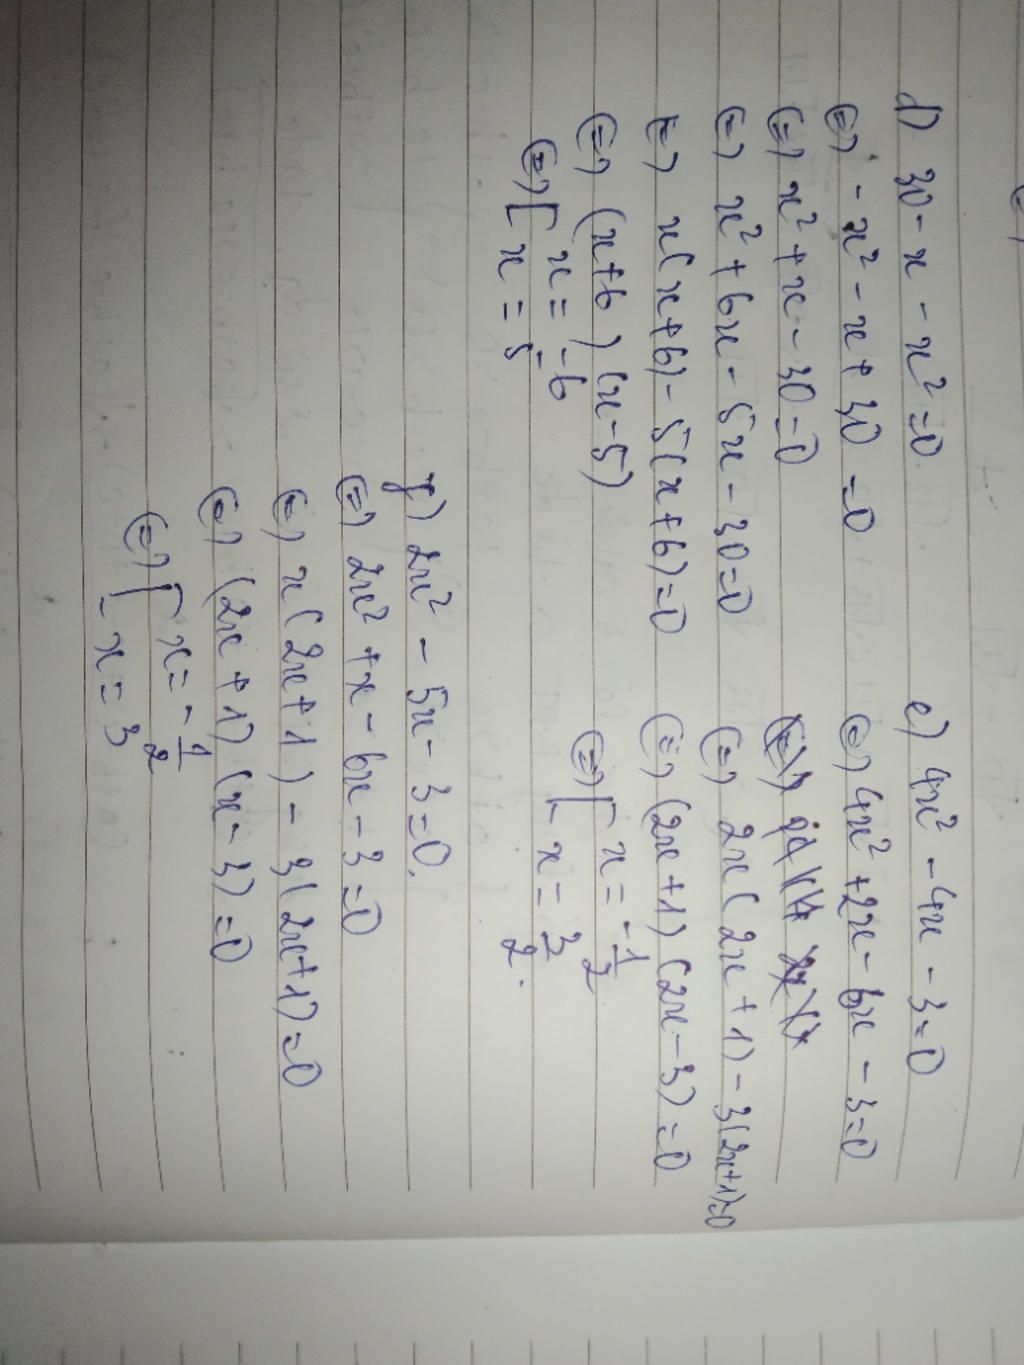 d) 30 - x - x² = 0
(=) - x² - x + 30 = 0
(=) x² + x - 30 = 0
(=) x² + 6x - 5x - 30 = 0
(=) x(x+6) - 5(x+6) = 0
(=) (x+6)(x-5)
(=) [ x = -6
x = 5
e) 4x² - 4x - 3 = 0
(=) 4x² + 2x - 6x - 3 = 0
(=) 2x(2x+1) - 3(2x+1) = 0
(=) (2x+1)(2x-3) = 0
(=) [ x = -1/2
x = 3/2.
f) 2x² - 5x - 3 = 0.
(=) 2x² + x - 6x - 3 = 0
(=) x(2x+1) - 3(2x+1) = 0
(=) (2x+1)(x-3) = 0
(=) [ x = -1/2
x = 3